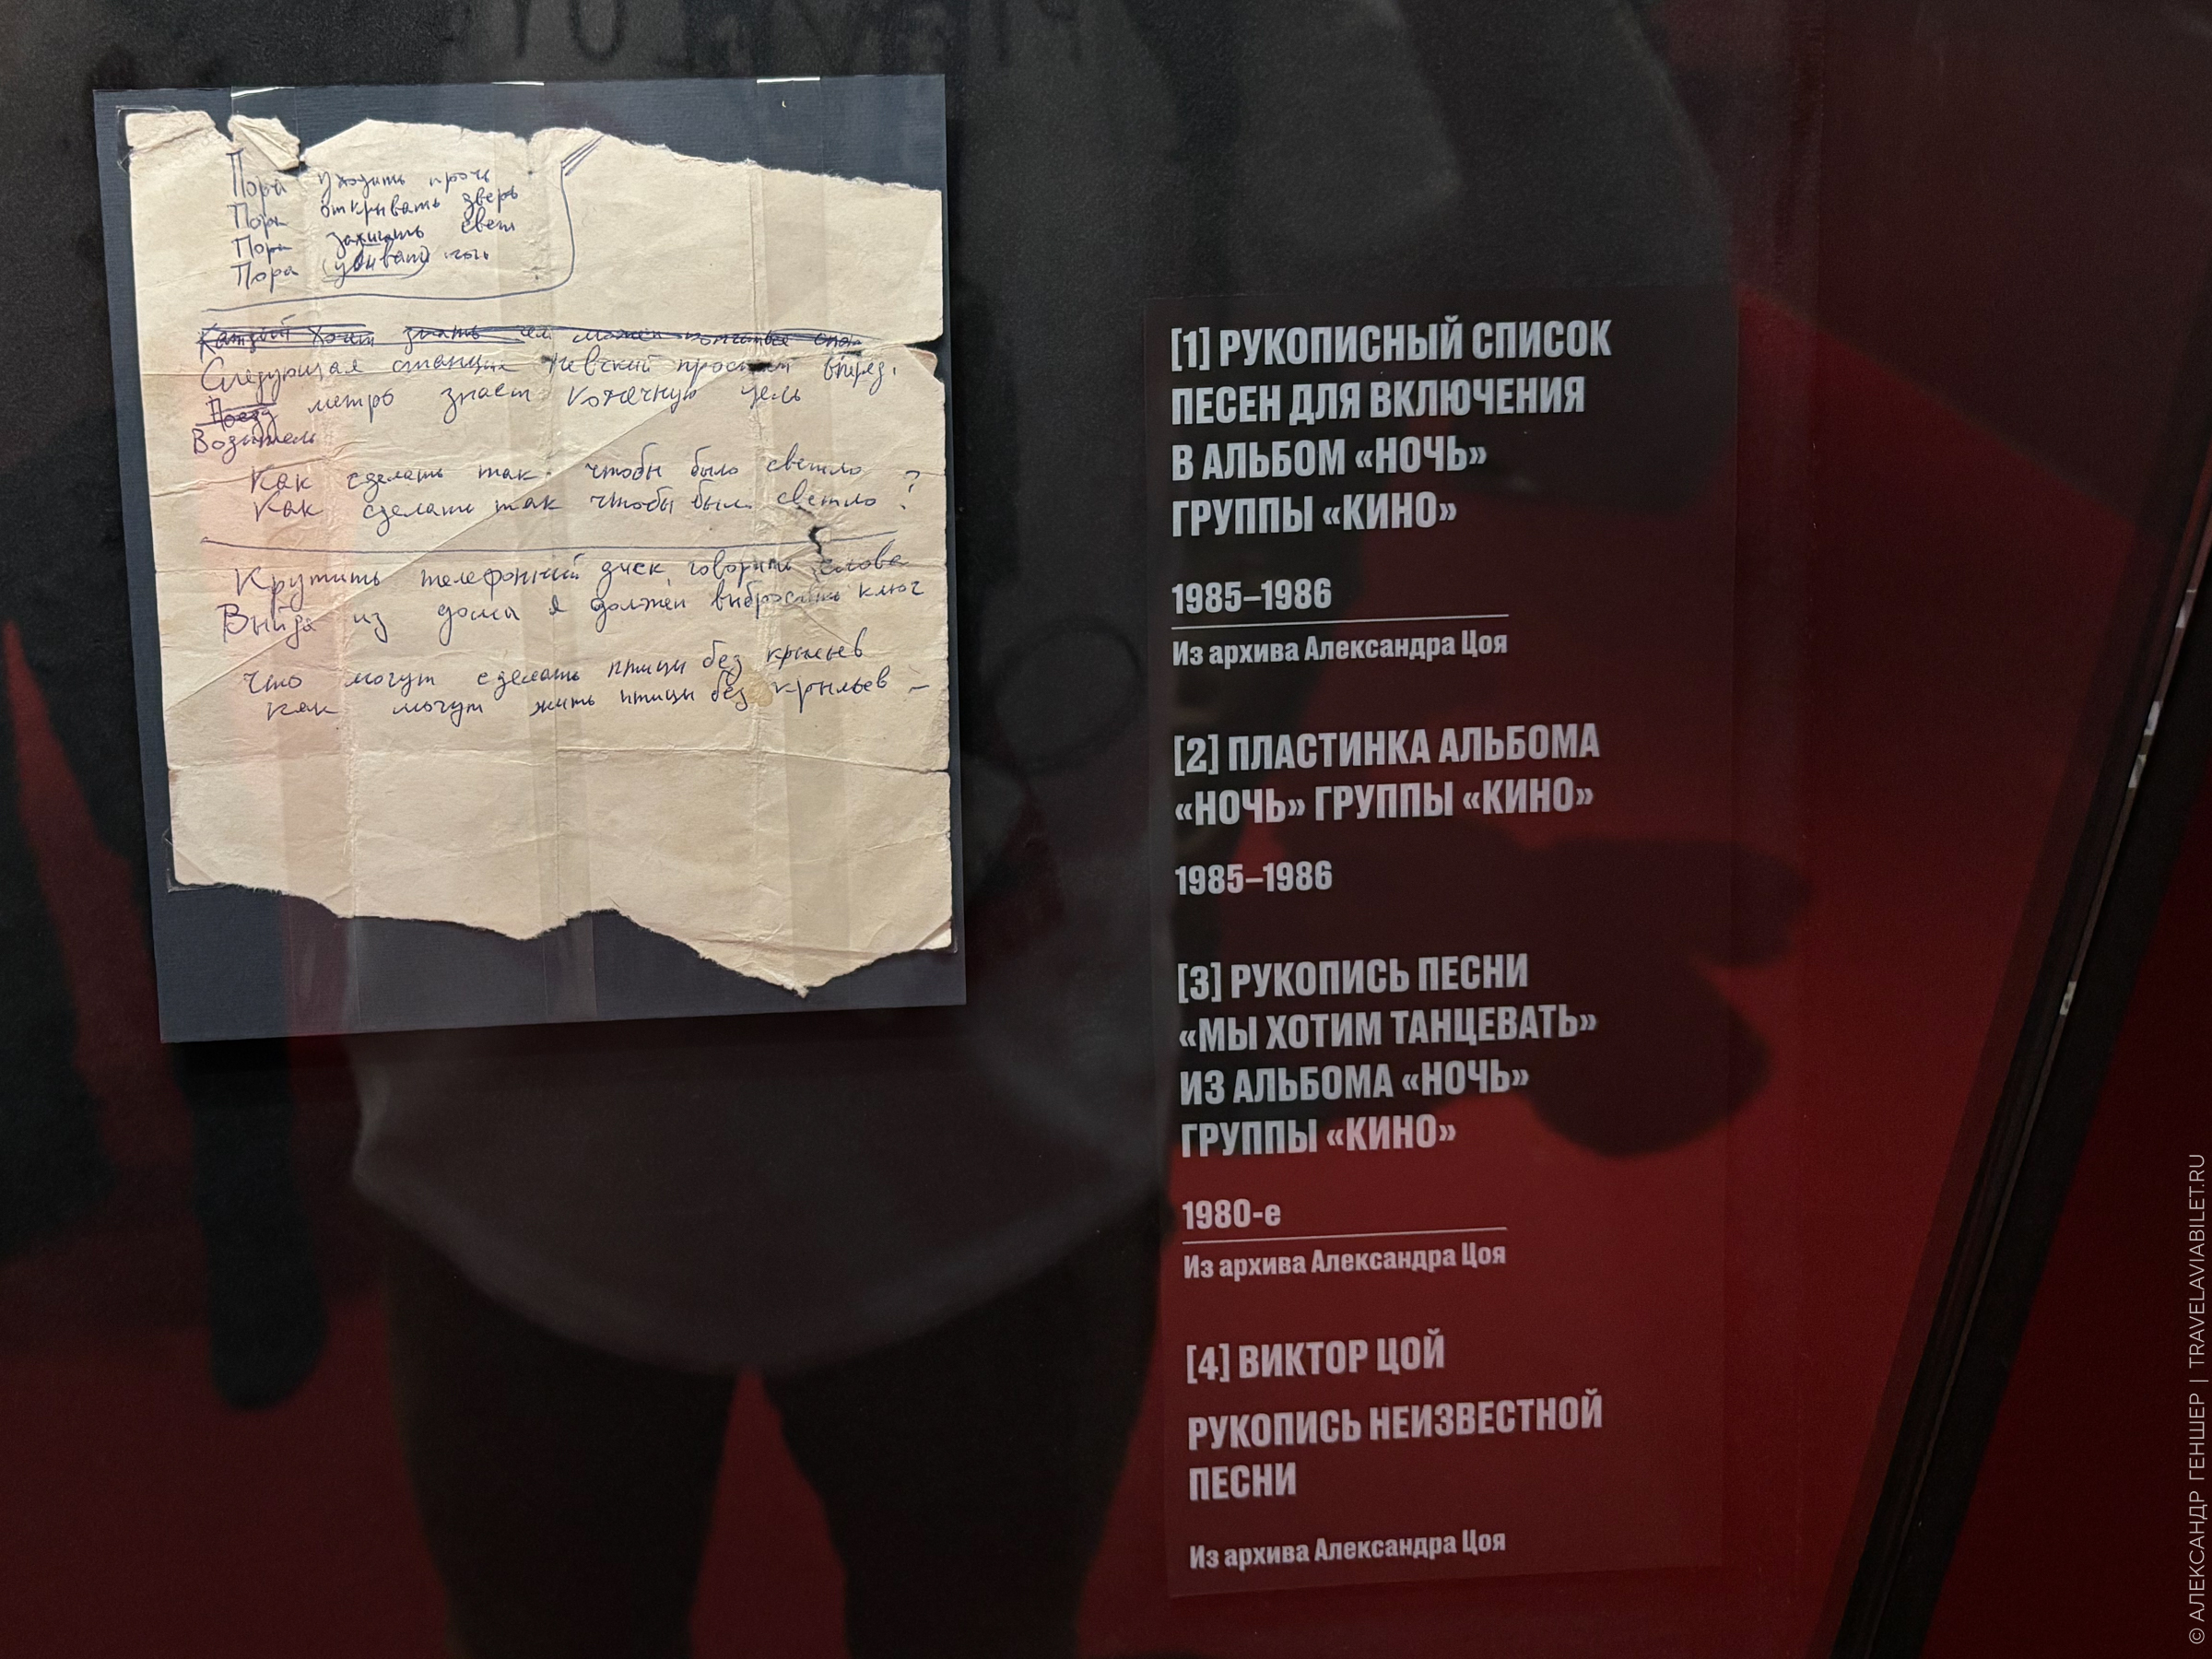 Пора уходить прочь
Пора открывать зверь
Пора зажигать свет
Пора (убивать) ночь
Каждый хочет знать чем может
Следующая станция Невский проспект вперед.
Поезд метро знает конечную цель
Водитель
Как сделать так чтобы было светло
Как сделать так чтобы было светло ?
Крутить телефонный диск, говорить слова
Выйдя из дома я должен выбросить ключ
Что могут сделать птицы без крыльев
как могут жить птицы без крыльев –
[1] РУКОПИСНЫЙ СПИСОК
ПЕСЕН ДЛЯ ВКЛЮЧЕНИЯ
В АЛЬБОМ «НОЧЬ»
ГРУППЫ «КИНО»
1985–1986
Из архива Александра Цоя
[2] ПЛАСТИНКА АЛЬБОМА
«НОЧЬ» ГРУППЫ «КИНО»
1985–1986
[3] РУКОПИСЬ ПЕСНИ
«МЫ ХОТИМ ТАНЦЕВАТЬ»
ИЗ АЛЬБОМА «НОЧЬ»
ГРУППЫ «КИНО»
1980-е
Из архива Александра Цоя
[4] ВИКТОР ЦОЙ
РУКОПИСЬ НЕИЗВЕСТНОЙ
ПЕСНИ
Из архива Александра Цоя
© АЛЕКСАНДР ГЕНШЕР | TRAVELAVIABILET.RU